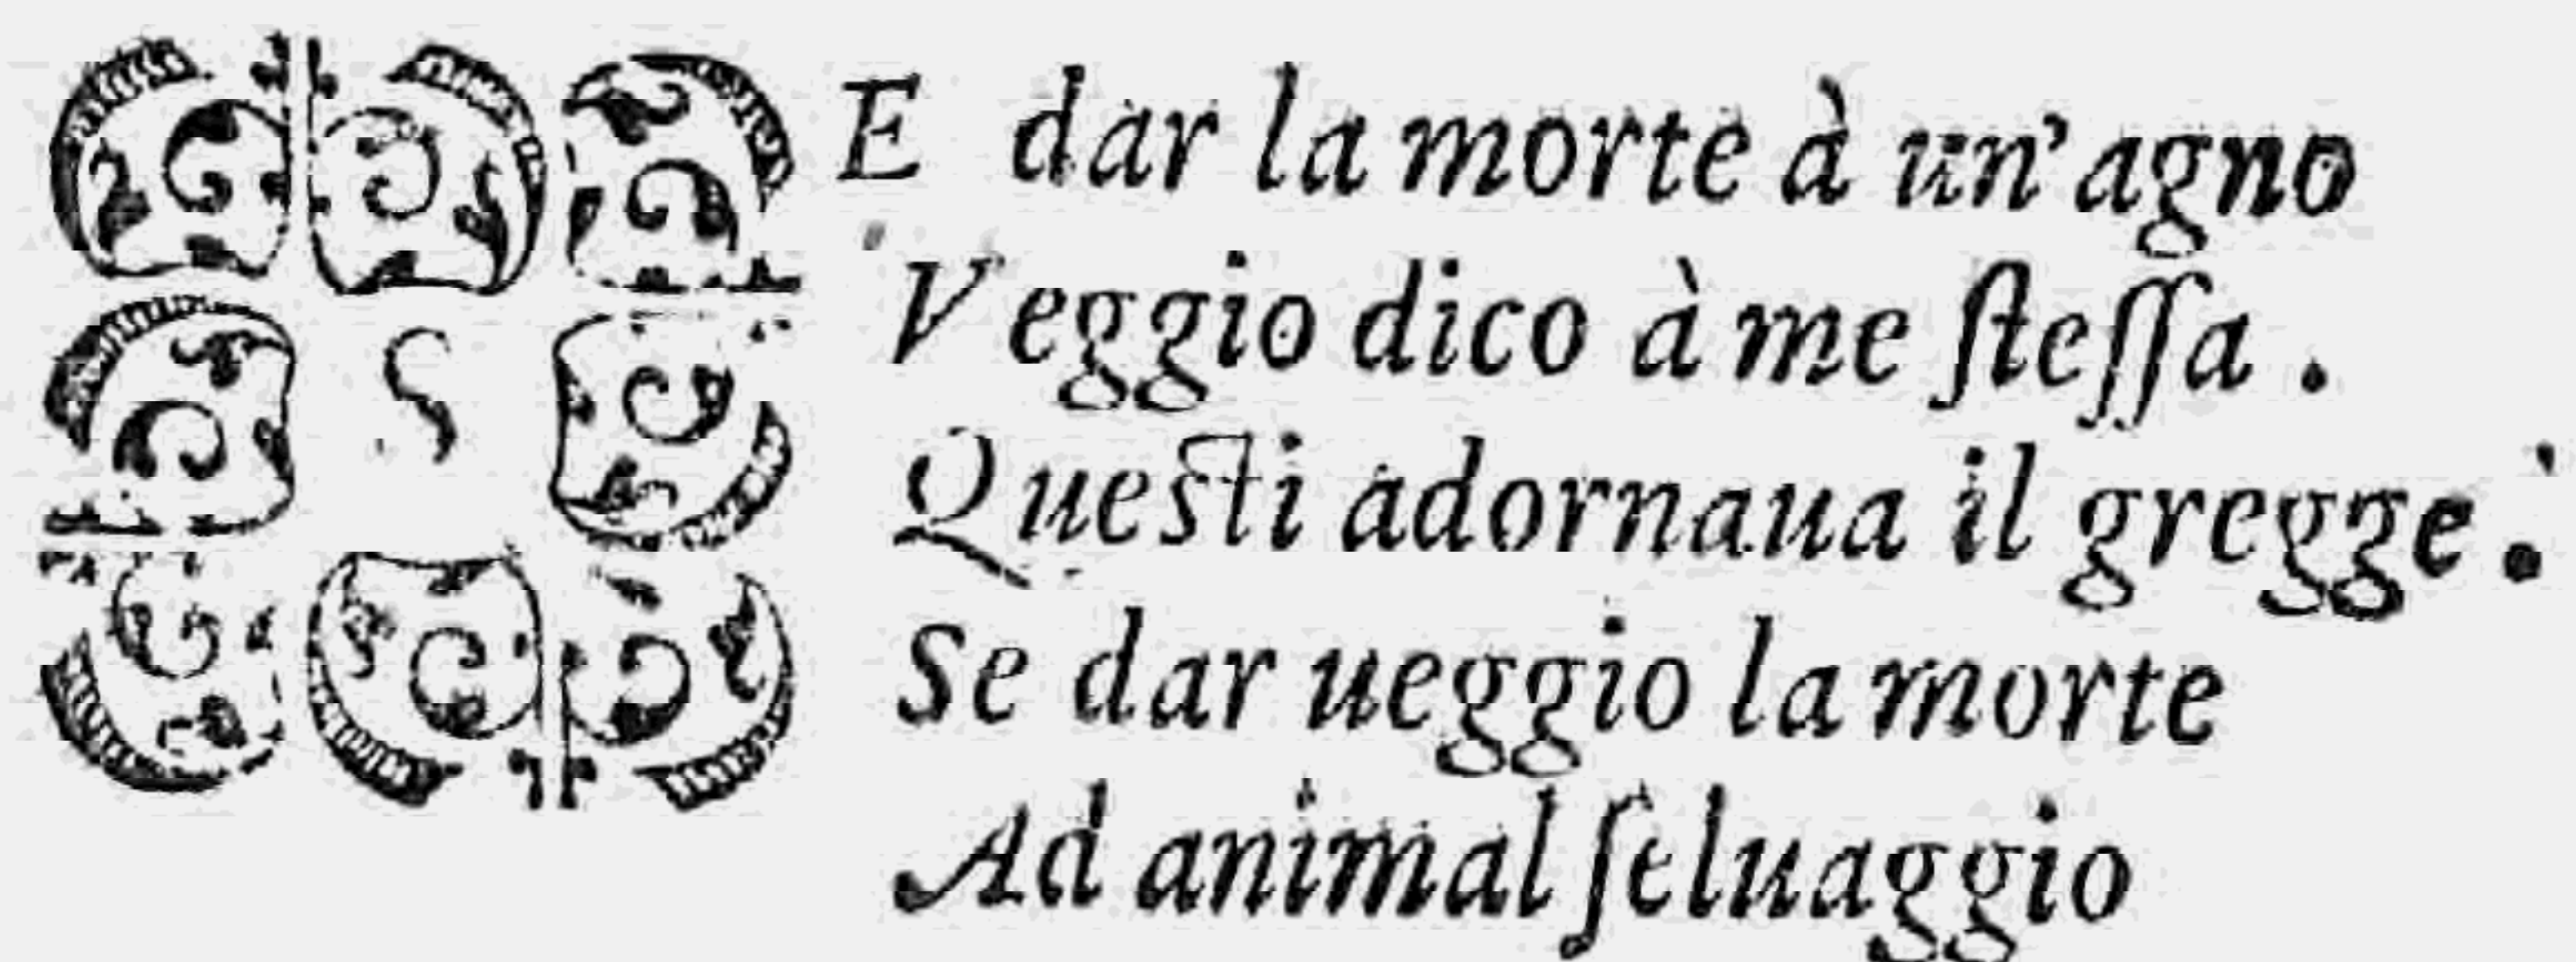 SE dar la morte à un'agno
Veggio dico à me ſteſſa.
Queſti adornaua il gregge.
Se dar ueggio la morte
Ad animal ſeluaggio